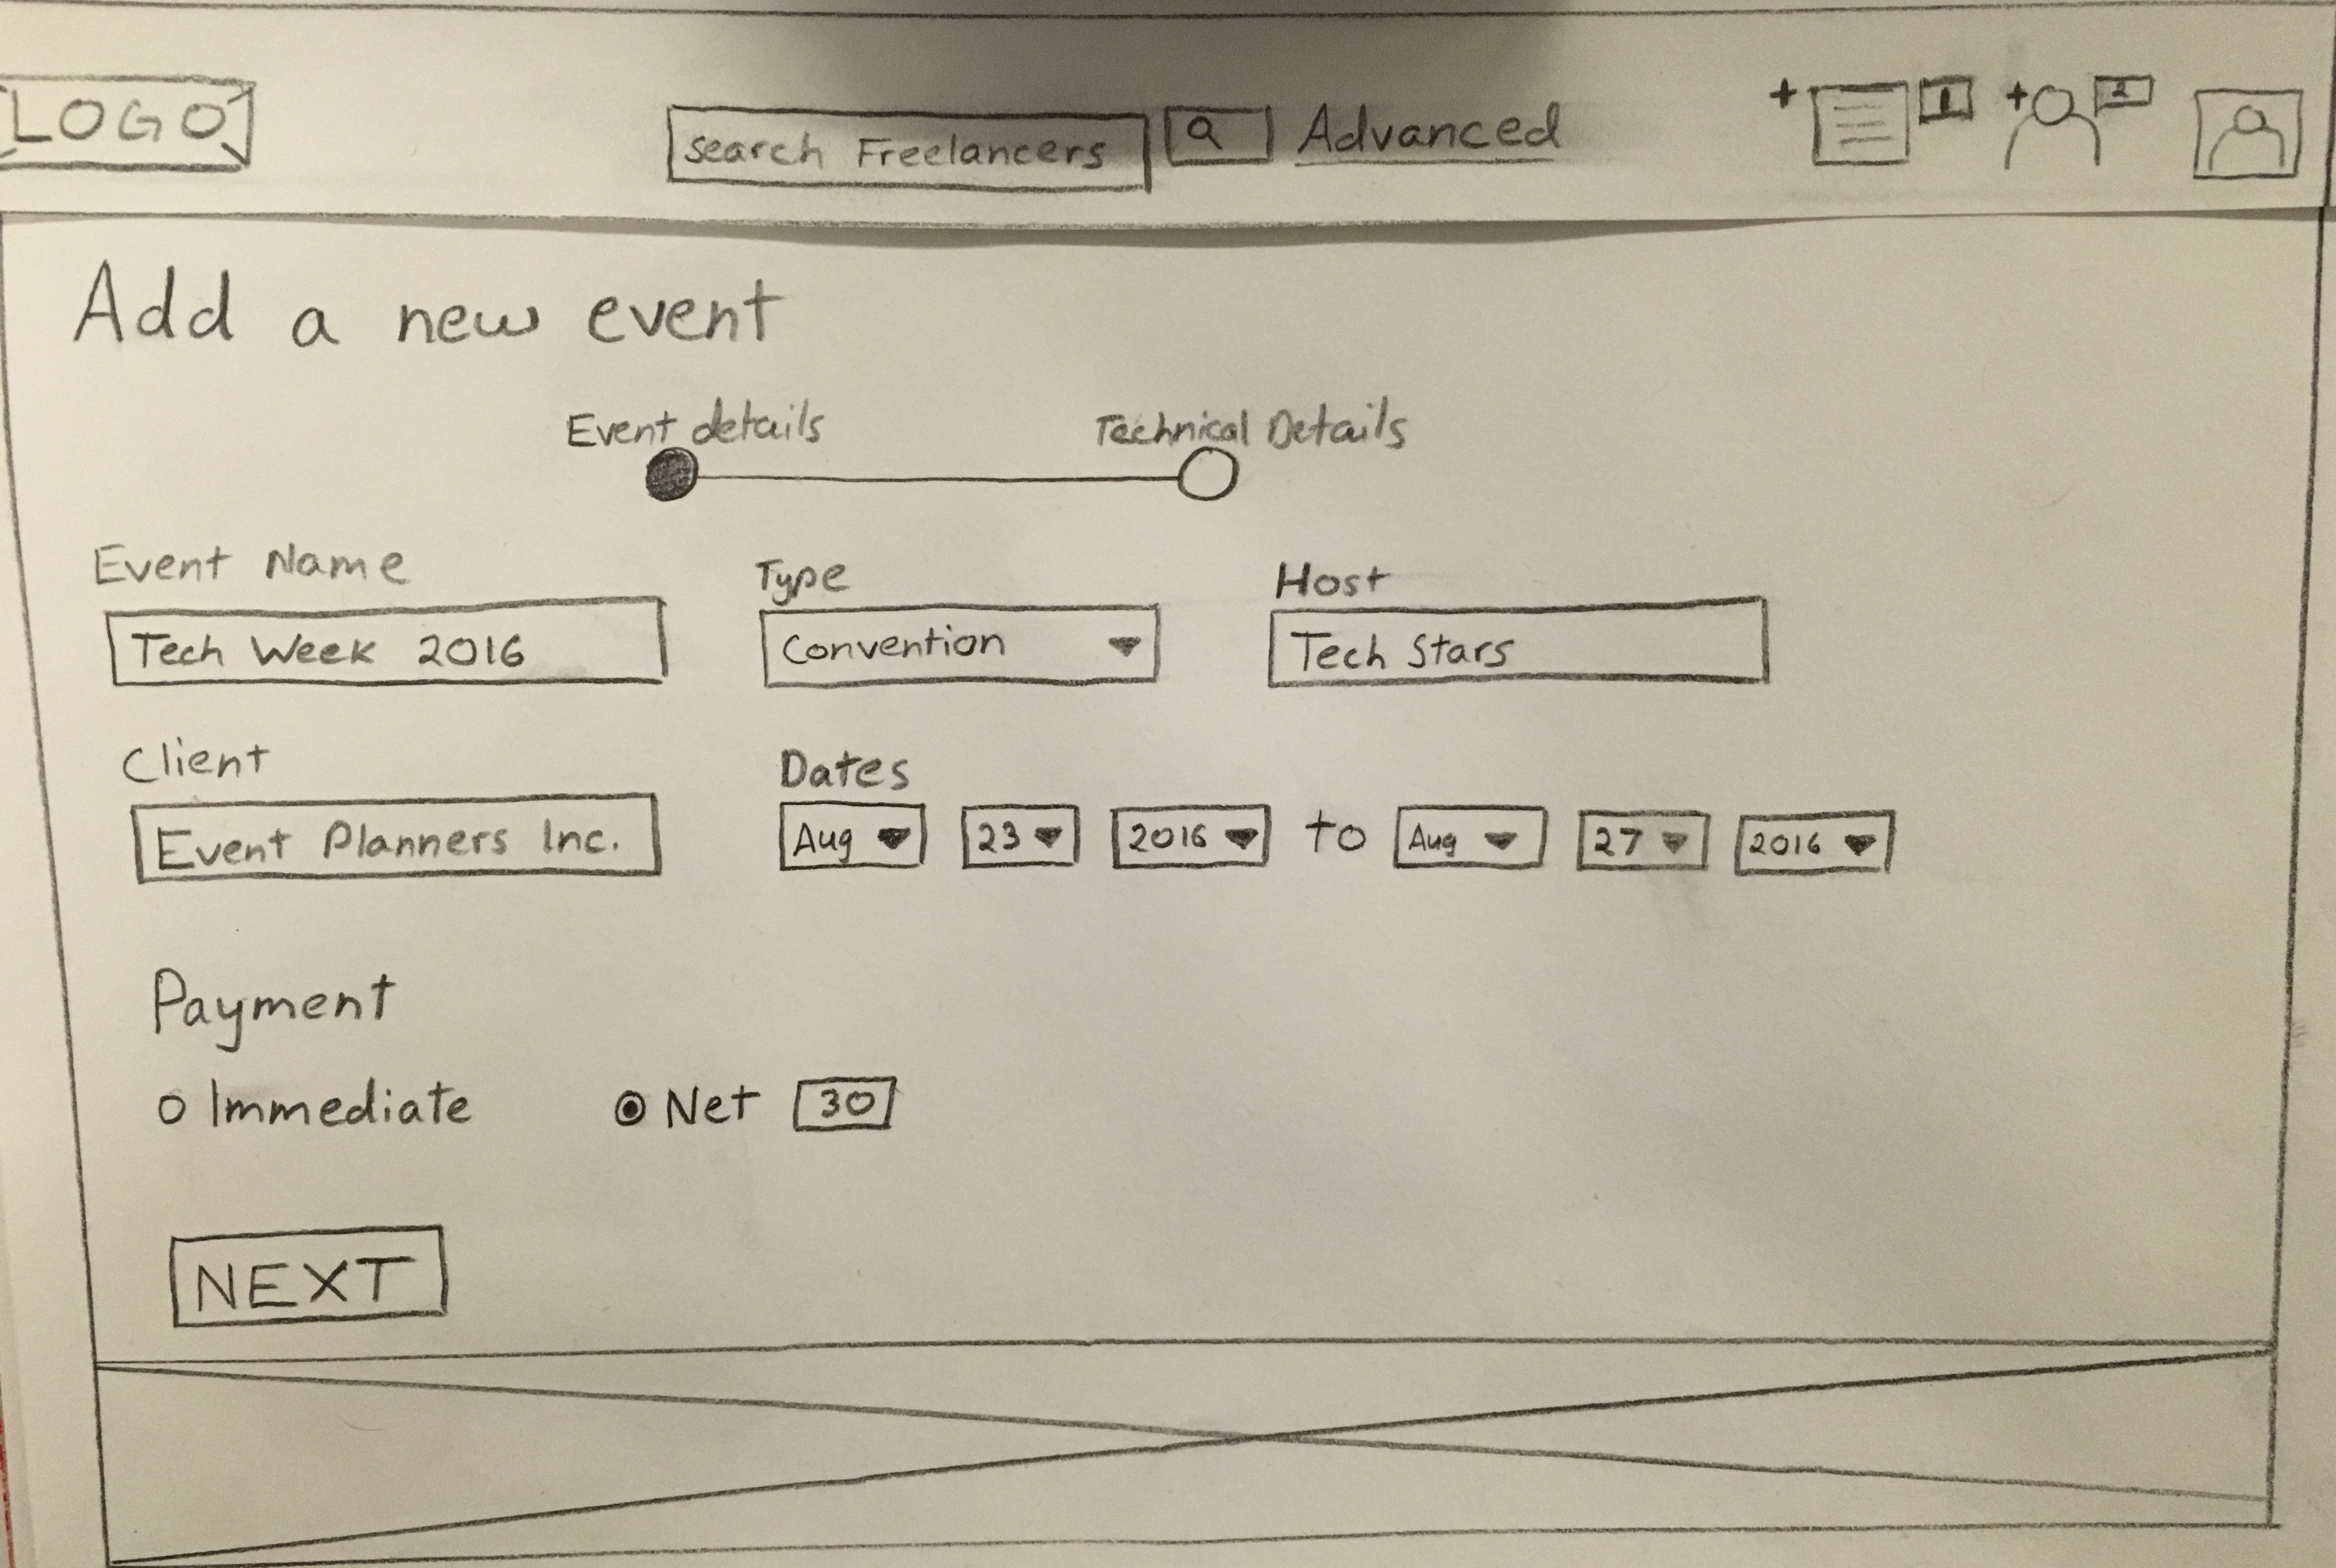 LOGO search Freelancers Advanced + 1 + 2
Add a new event
Event details Technical Details
Event Name Type Host
Tech Week 2016 Convention Tech Stars
Client Dates
Event Planners Inc. Aug 23 2016 to Aug 27 2016
Payment
Immediate Net 30
NEXT